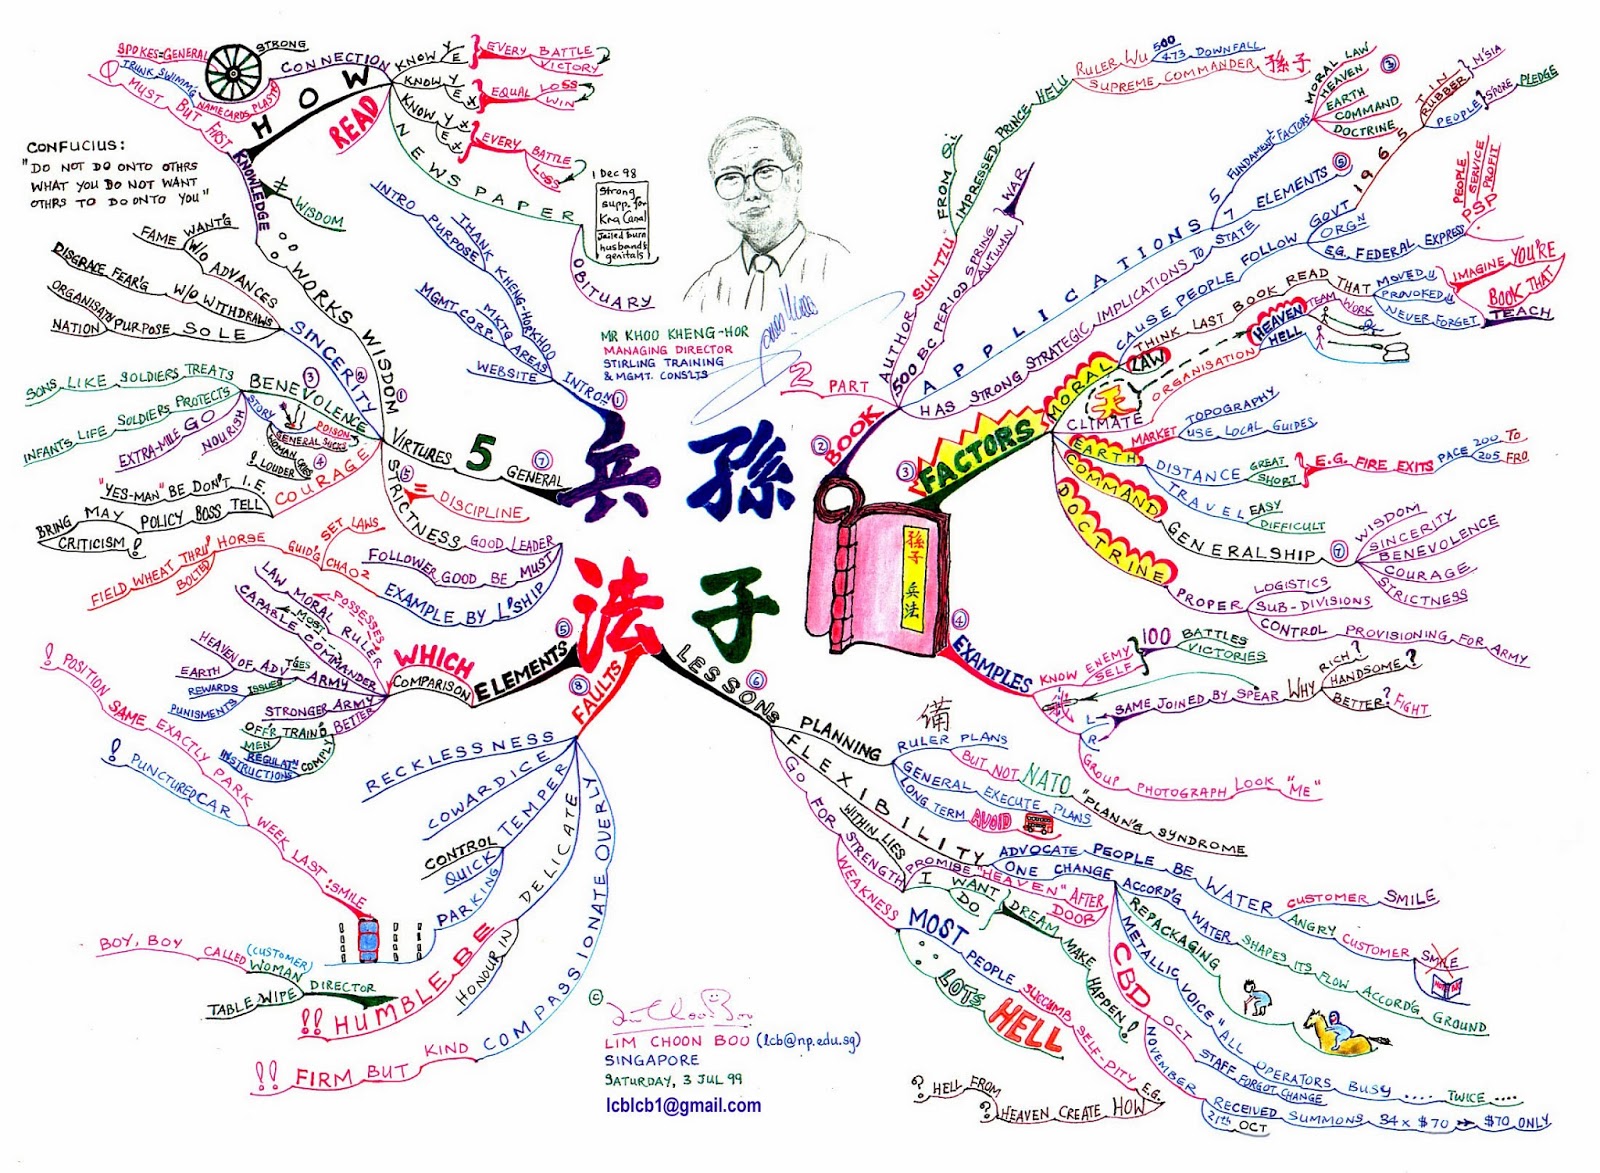 SPOKES=GENERAL
STRONG
CONNECTION
TRUNK SWIMM'G
NAMECARDS PLASTIC
MUST BUT FIRST
KNOWLEDGE
≠ WISDOM
HOW
READ
KNOW Y E
EVERY BATTLE
VICTORY
KNOW Y E x
EQUAL LOSS
WIN
KNOW Y x E x
EVERY BATTLE
LOSS
NEWSPAPER
1 Dec 98
Strong supp. for Kra Canal
Jailed burn husband's genitals
OBITUARY
CONFUCIUS:
"DO NOT DO ONTO OTHRS
WHAT YOU DO NOT WANT
OTHRS TO DO ONTO YOU"
FAME WANT'G W/O ADVANCES
DISGRACE FEAR'G W/O WITHDRAWS
ORGANISATN
NATION PURPOSE SOLE
WORKS WISDOM ①
SINCERITY ②
SONS LIKE SOLDIERS TREATS
BENEVOLENCE ③
INFANTS LIFE SOLDIERS PROTECTS
EXTRA-MILE GO
NOURISH
STORY
POISON
GENERAL SUCKS
WOMAN CRIES
! LOUDER
④
COURAGE
"YES-MAN" BE DON'T I.E.
BRING MAY POLICY BOSS TELL
CRITICISM!
VIRTURES 5 GENERAL ⑦
⑤
STRICTNESS
= DISCIPLINE
GOOD LEADER
MUST BE GOOD FOLLOWER
EXAMPLE BY L'SHIP
SET LAWS
GUID'G CHAO2
FIELD WHEAT THRU' HORSE
BOLTED
INTRO PURPOSE
THANK KHENG-HORKHOO
MGMT CORP. MKTG AREAS
WEBSITE
INTRON ①
MR KHOO KHENG-HOR
MANAGING DIRECTOR
STIRLING TRAINING
& MGMT. CONSLTS
2 PART
② BOOK
AUTHOR SUN TZU
FROM Qi
IMPRESSED PRINCE HELU
RULER WU 500 473 DOWNFALL
SUPREME COMMANDER 孫子
500 BC PERIOD SPRING AUTUMN
WAR
APPLICATIONS
5 FUNDAMENT^L FACTORS
③
MORAL LAW
HEAVEN
EARTH
COMMAND
DOCTRINE
7 ELEMENTS ⑤
HAS STRONG STRATEGIC IMPLICATIONS TO STATE
CAUSE PEOPLE FOLLOW
GOVT 1965
TIN RUBBER M'SIA
PEOPLE S'PORE PLEDGE
ORGN
E.G. FEDERAL EXPRESS
PSP
PEOPLE
SERVICE
PROFIT
③ FACTORS
MORAL LAW
THINK LAST BOOK READ THAT
MOVED U
PROVOKED U
NEVER FORGET
IMAGINE YOU'RE
BOOK THAT
TEACH
天
CLIMATE
ORGANISATION
HEAVEN
HELL
TEAM WORK
EARTH
MARKET
TOPOGRAPHY
USE LOCAL GUIDES
DISTANCE GREAT
SHORT
E.G. FIRE EXITS PACE 200 TO
205 FRO
TRAVEL EASY
DIFFICULT
COMMAND
GENERALSHIP
⑦
WISDOM
SINCERITY
BENEVOLENCE
COURAGE
STRICTNESS
DOCTRINE
PROPER
LOGISTICS
SUB-DIVISIONS
CONTROL PROVISIONING FOR ARMY
兵 孫
法 子
孫子 兵法
④ EXAMPLES
KNOW ENEMY
SELF
100 BATTLES
VICTORIES
我
L
R
SAME JOINED BY SPEAR
WHY
RICH?
HANDSOME?
BETTER? FIGHT
GROUP PHOTOGRAPH LOOK "ME"
⑤ ELEMENTS
COMPARISON
WHICH
LAW MORAL POSSESSES RULER
CAPABLE MOST COMMANDER
HEAVEN OF ADVT'GES
EARTH
ARMY
REWARDS
PUNISHMENTS
ISSUES
STRONGER ARMY
OFF'R
MEN
TRAIN'G BETTER
REGULATN
INSTRUCTIONS
COMPLY
⑧ FAULTS
RECKLESSNESS
COWARDICE
TEMPER
CONTROL
QUICK
PARKING
! POSITION SAME EXACTLY PARK WEEK LAST :SMILE
! PUNCTURED CAR
DELICATE
HONOUR IN
!! HUMBLE BE
DIRECTOR
BOY, BOY CALLED WOMAN (CUSTOMER)
TABLE WIPE
COMPASSIONATE OVERLY
!! FIRM BUT KIND
⑥ LESSONS
PLANNING
備
RULER PLANS
BUT NOT NATO "PLANN'G SYNDROME
GENERAL EXECUTE PLANS
LONG TERM AVOID
FLEXIBILITY
ADVOCATE PEOPLE BE WATER
CUSTOMER SMILE
ANGRY CUSTOMER SMILE
ONE CHANGE ACCORD'G WATER SHAPES ITS FLOW ACCORD'G GROUND
REPACKAGING
METALLIC VOICE "ALL OPERATORS BUSY .... TWICE ....
CBD
OCT STAFF FORGOT CHANGE
NOVEMBER
RECEIVED SUMMONS 34 x $70 → $70 ONLY
21th OCT
GO FOR STRENGTH
WEAKNESS
WITHIN LIES
PROMISE "HEAVEN" AFTER
DOOR
I WANT
DO
DREAM MAKE HAPPEN!
MOST PEOPLE SUCCUMB SELF-PITY E.G.
∴ LOTS HELL
? HELL FROM
? HEAVEN CREATE HOW
©
LIM CHOON BOO (lcb@np.edu.sg)
SINGAPORE
SATURDAY, 3 JUL 99
lcblcb1@gmail.com